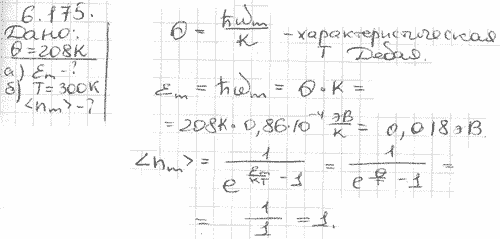 6.175.
Дано:
θ = 208К
а) εm - ?
б) T = 300К
<nm> - ?
θ = ħωm / K - характеристическая
T Дебая.
εm = ħωm = θ · K =
= 208К · 0,86 · 10^-4 эВ/К = 0,018 эВ.
<nm> = 1 / (e^(εm/KT) - 1) = 1 / (e^(θ/T) - 1) =
= 1/1 = 1.